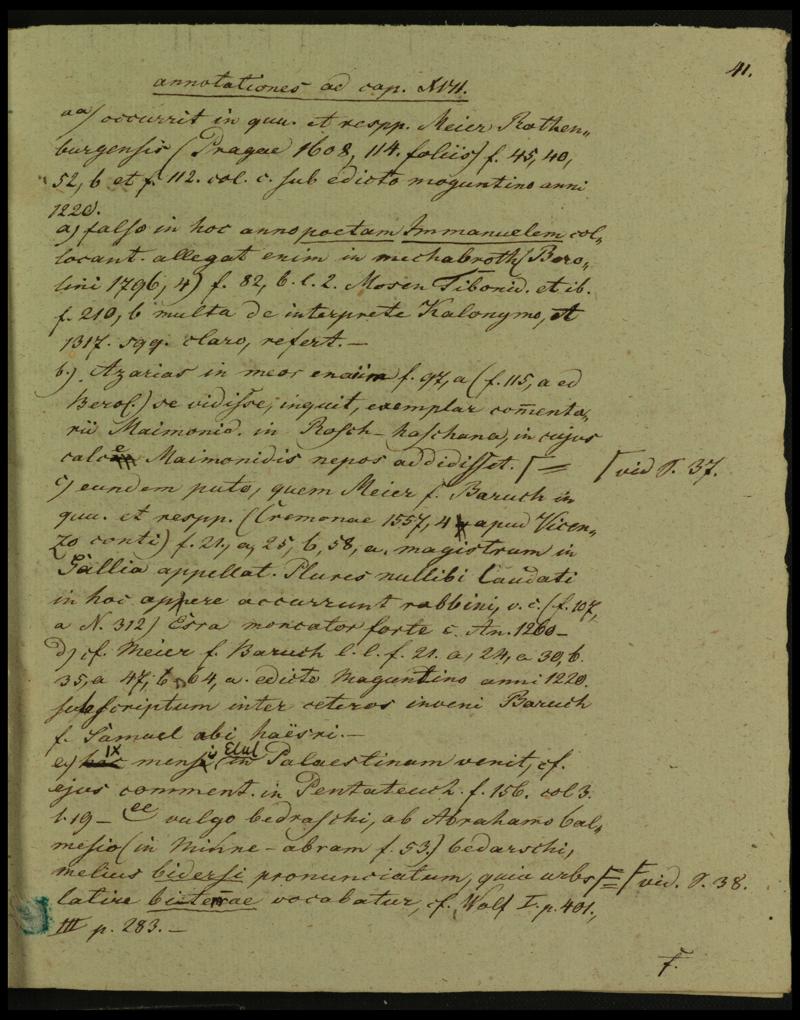 41.
annotationes ad cap. XVII.
aa) occurrit in quu. et respp. Meier Rothen„
burgensis (Pragae 1608, 114. foliis) f. 45, 40,
52, b et f. 112. col. c. sub edicto moguntino anni
1220.
a) falso in hoc anno poetam Immanuelem col„
locant. allegat enim in mechabroth (Bero„
lini 1796, 4) f. 82, b. l. 2. Mosen Tibonid. et ib.
f. 210, b multa de interprete Kalonymo, et
1317. sqq. claro, refert. —
b.) Azarias in meor enaim f. 97, a (f. 115, a ed
Berol.) se vidisse, inquit, exemplar com̄enta„
rii Maimonid. in Rosch-haschana, in cujus
calce Maimonidis nepos addidisset. [= [vid P. 37.
c) eundem puto, quem Meier f. Baruch in
quu. et respp. (Cremonae 1557, 4 apud Vicen„
zo conti) f. 21, a, 25, b, 58, a. magistrum in
Gallia appellat. Plures nullibi laudati
in hoc opere occurrunt rabbini, v. c. (f. 107,
a N. 312) Esra moncator forte c. An. 1260 —
d) cf. Meier f. Baruch l. l. f. 21. a, 24, a 30, b.
35, a 47, b 64, a. edicto Maguntino anni 1220.
subscriptum inter ceteros inveni Baruch
f. Samuel abi haësri. —
e) IX mensis Elul in Palaestinam venit, cf.
ejus comment. in Pentateuch. f. 156. col 3.
l. 19 — ee vulgo bedraschi, ab Abrahamo bal„
mesio (in Mikne-abram f. 53.) bedarschi,
melius bidersi pronunciatum, quia urbs [= [vid. P. 38.
latine biterrae vocabatur, cf. Wolf I. p. 401.,
III p. 283. —
f.